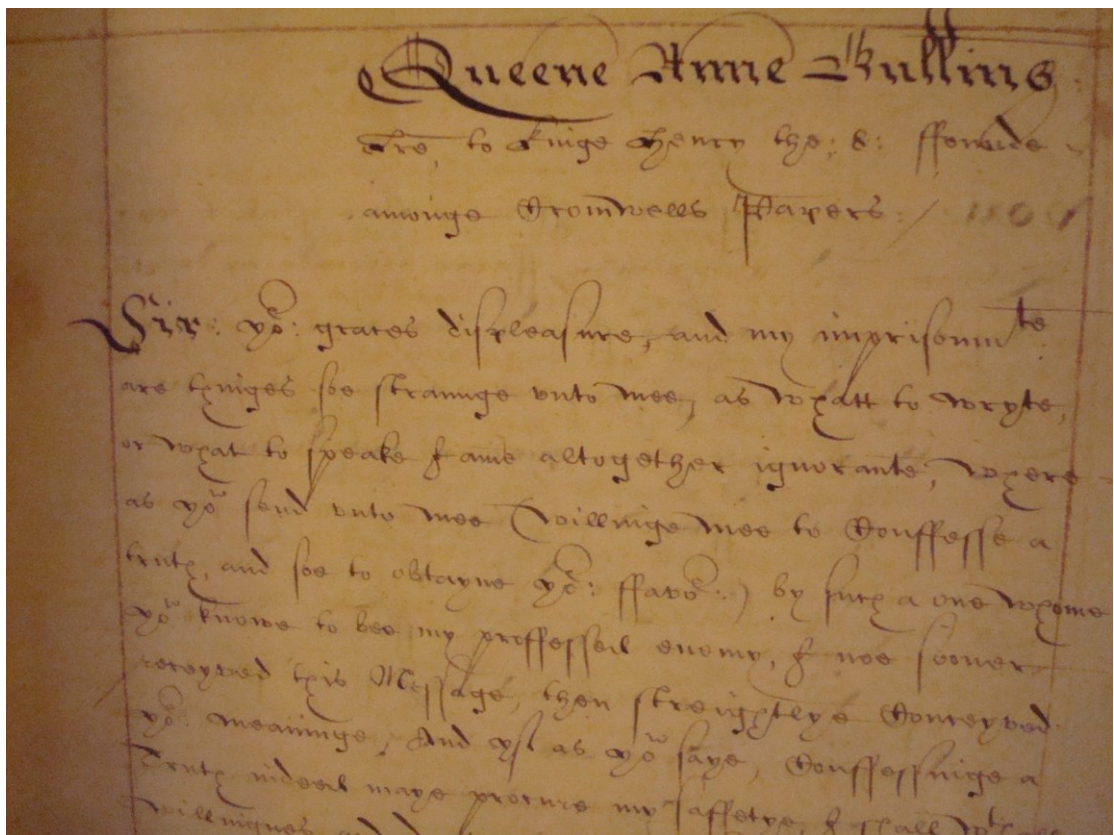 Queene Anne Bullins
Lre, to Kinge Henry the: 8: ffounde
amonge Cromwells Papers: /
Sir: yor: graces displeasure, and my imprisonmte
are thinges soe straunge vnto mee, as whatt to wryte,
or what to speake I ame altogether ignorante; where
as you send vnto mee (willinge mee to Conffesse a
truth, and soe to obtayne yor: ffavor:) by such a one whome
you knowe to bee my proffessed enemy, I noe sooner
receyved this Message, then streightlye Conceyved
yor: meaninge; And yf as you saye, Conffessinge a
Truth indeed maye procure my saffetye, I shall wth
willingnes and